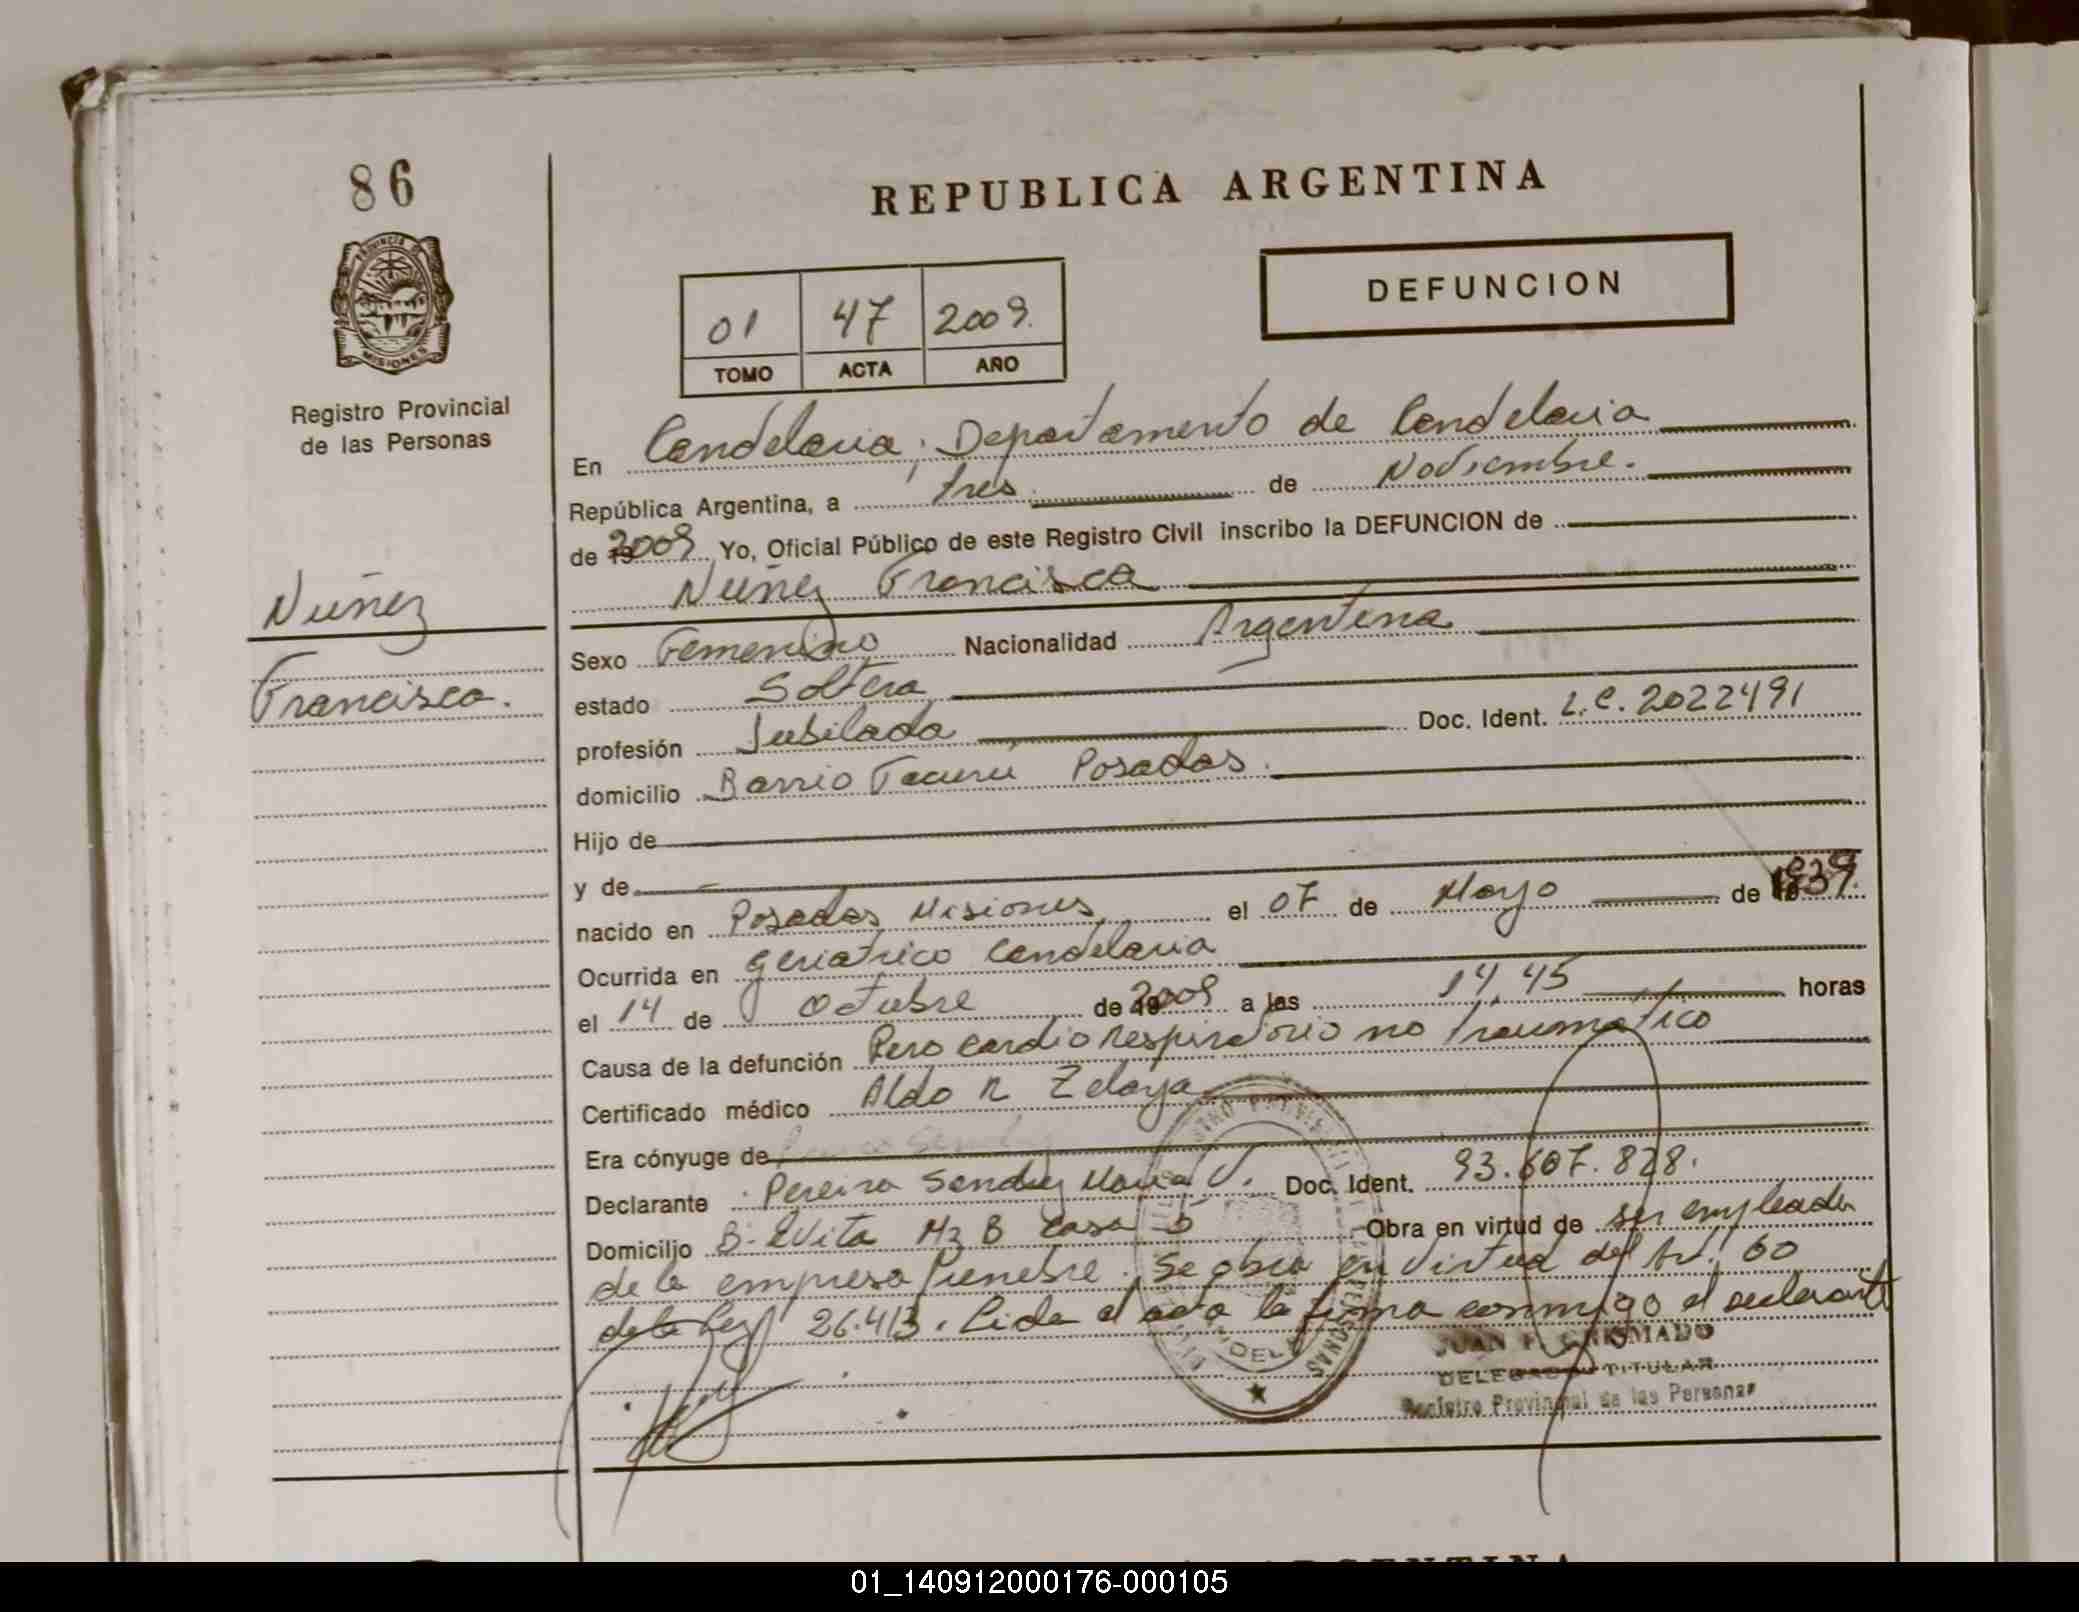 86
REPUBLICA ARGENTINA
PROVINCIA DE
MISIONES
Registro Provincial
de las Personas
DEFUNCION
01 47 2009.
TOMO ACTA AÑO
En Candelaria, Departamento de Candelaria
República Argentina, a tres de Noviembre.
de 2009 Yo, Oficial Público de este Registro Civil inscribo la DEFUNCION de
Nuñez Francisca
Nuñez
Francisca.
Sexo Femenino Nacionalidad Argentina
estado Soltera
profesión Jubilada Doc. Ident. L.C. 2022491
domicilio Barrio Posadas.
Hijo de
y de
nacido en Posadas Misiones el 07 de Mayo de 1939.
Ocurrida en geriatrico Candelaria
el 14 de Octubre de 2009 a las 14,45 horas
Causa de la defunción Paro cardio respiratorio no traumatico
Certificado médico Aldo R Zelaya
Era cónyuge de
Declarante Pereira Maria V. Doc. Ident. 93.607.828.
Domicilio B. Evita Mz B casa 5 Obra en virtud de ser empleada
de la empresa funebre. Se obra en virtud del Art. 60
de la Ley 26.413. Leida el acta la firma conmigo el declarante
JUAN
DELEGADO TITULAR
Registro Provincial de las Personas
ARGENTINA
01_140912000176-000105